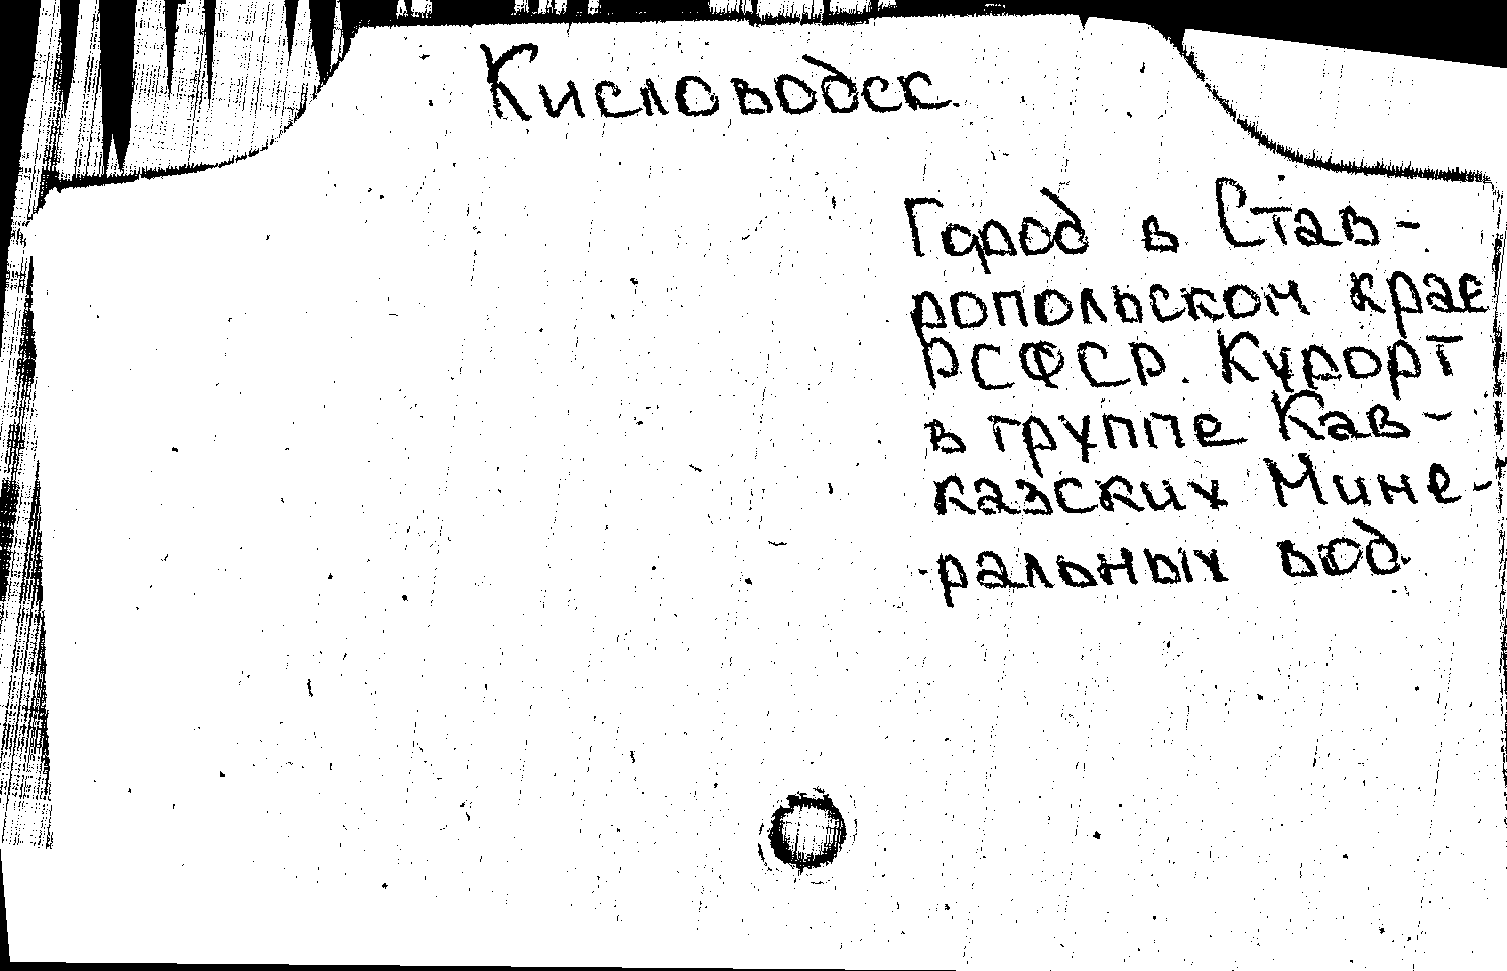 Кисловодск.
Город в Став-
ропольском крае
РСФСР. Курорт
в группе Кав-
казских Мине-
ральных вод.